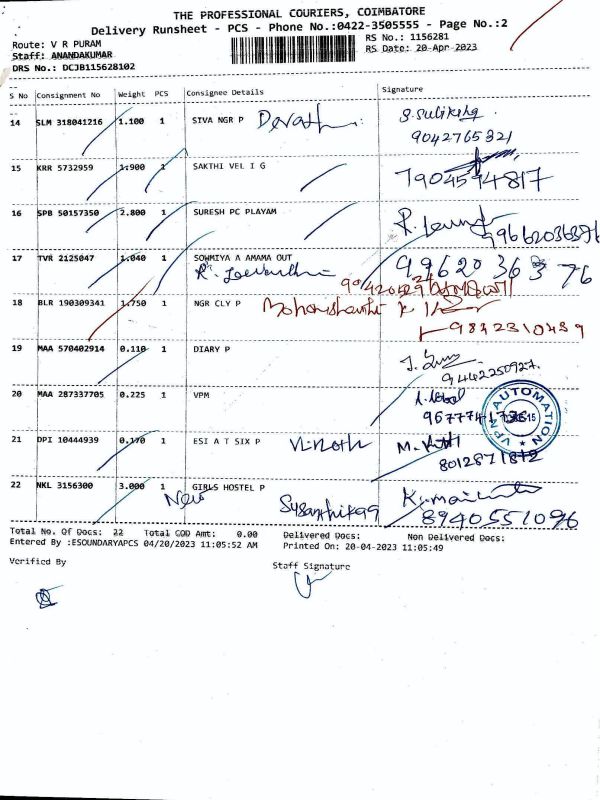 THE PROFESSIONAL COURIERS, COIMBATORE
Delivery Runsheet - PCS - Phone No.:0422-3505555 - Page No.:2
Route: V R PURAM
RS No.: 1156281
Staff: ANANDAKUMAR
RS Date: 20-Apr-2023
DRS No.: DCJB115628102
S No Consignment No Weight PCS Consignee Details Signature
14 SLM 318041216 1.100 1 SIVA NGR P
9042765321
15 KRR 5732959 1.900 1 SAKTHI VEL I G
7904594817
16 SPB 50157350 2.800 1 SURESH PC PLAYAM
99662036376
17 TVR 2125047 1.040 1 SOWMIYA A AMAMA OUT
9962036376
18 BLR 190309341 1.750 1 NGR CLY P
9842310439
19 MAA 570402914 0.110 1 DIARY P
9442250927
20 MAA 287337705 0.225 1 VPM
VPN AUTOMATION
21 DPI 10444939 0.170 1 ESI A T SIX P Vinoth
8012871872
22 NKL 3156300 3.000 1 GIRLS HOSTEL P
New
8940551096
Total No. Of Docs: 22 Total COD Amt: 0.00 Delivered Docs: Non Delivered Docs:
Entered By :ESOUNDARYAPCS 04/20/2023 11:05:52 AM Printed On: 20-04-2023 11:05:49
Verified By
Staff Signature